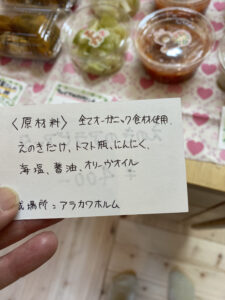 〈原材料〉 全てオーガニック食材使用
えのきたけ、トマト瓶、にんにく、
海塩、醤油、オリーヴオイル
成場所：アラカワホルム